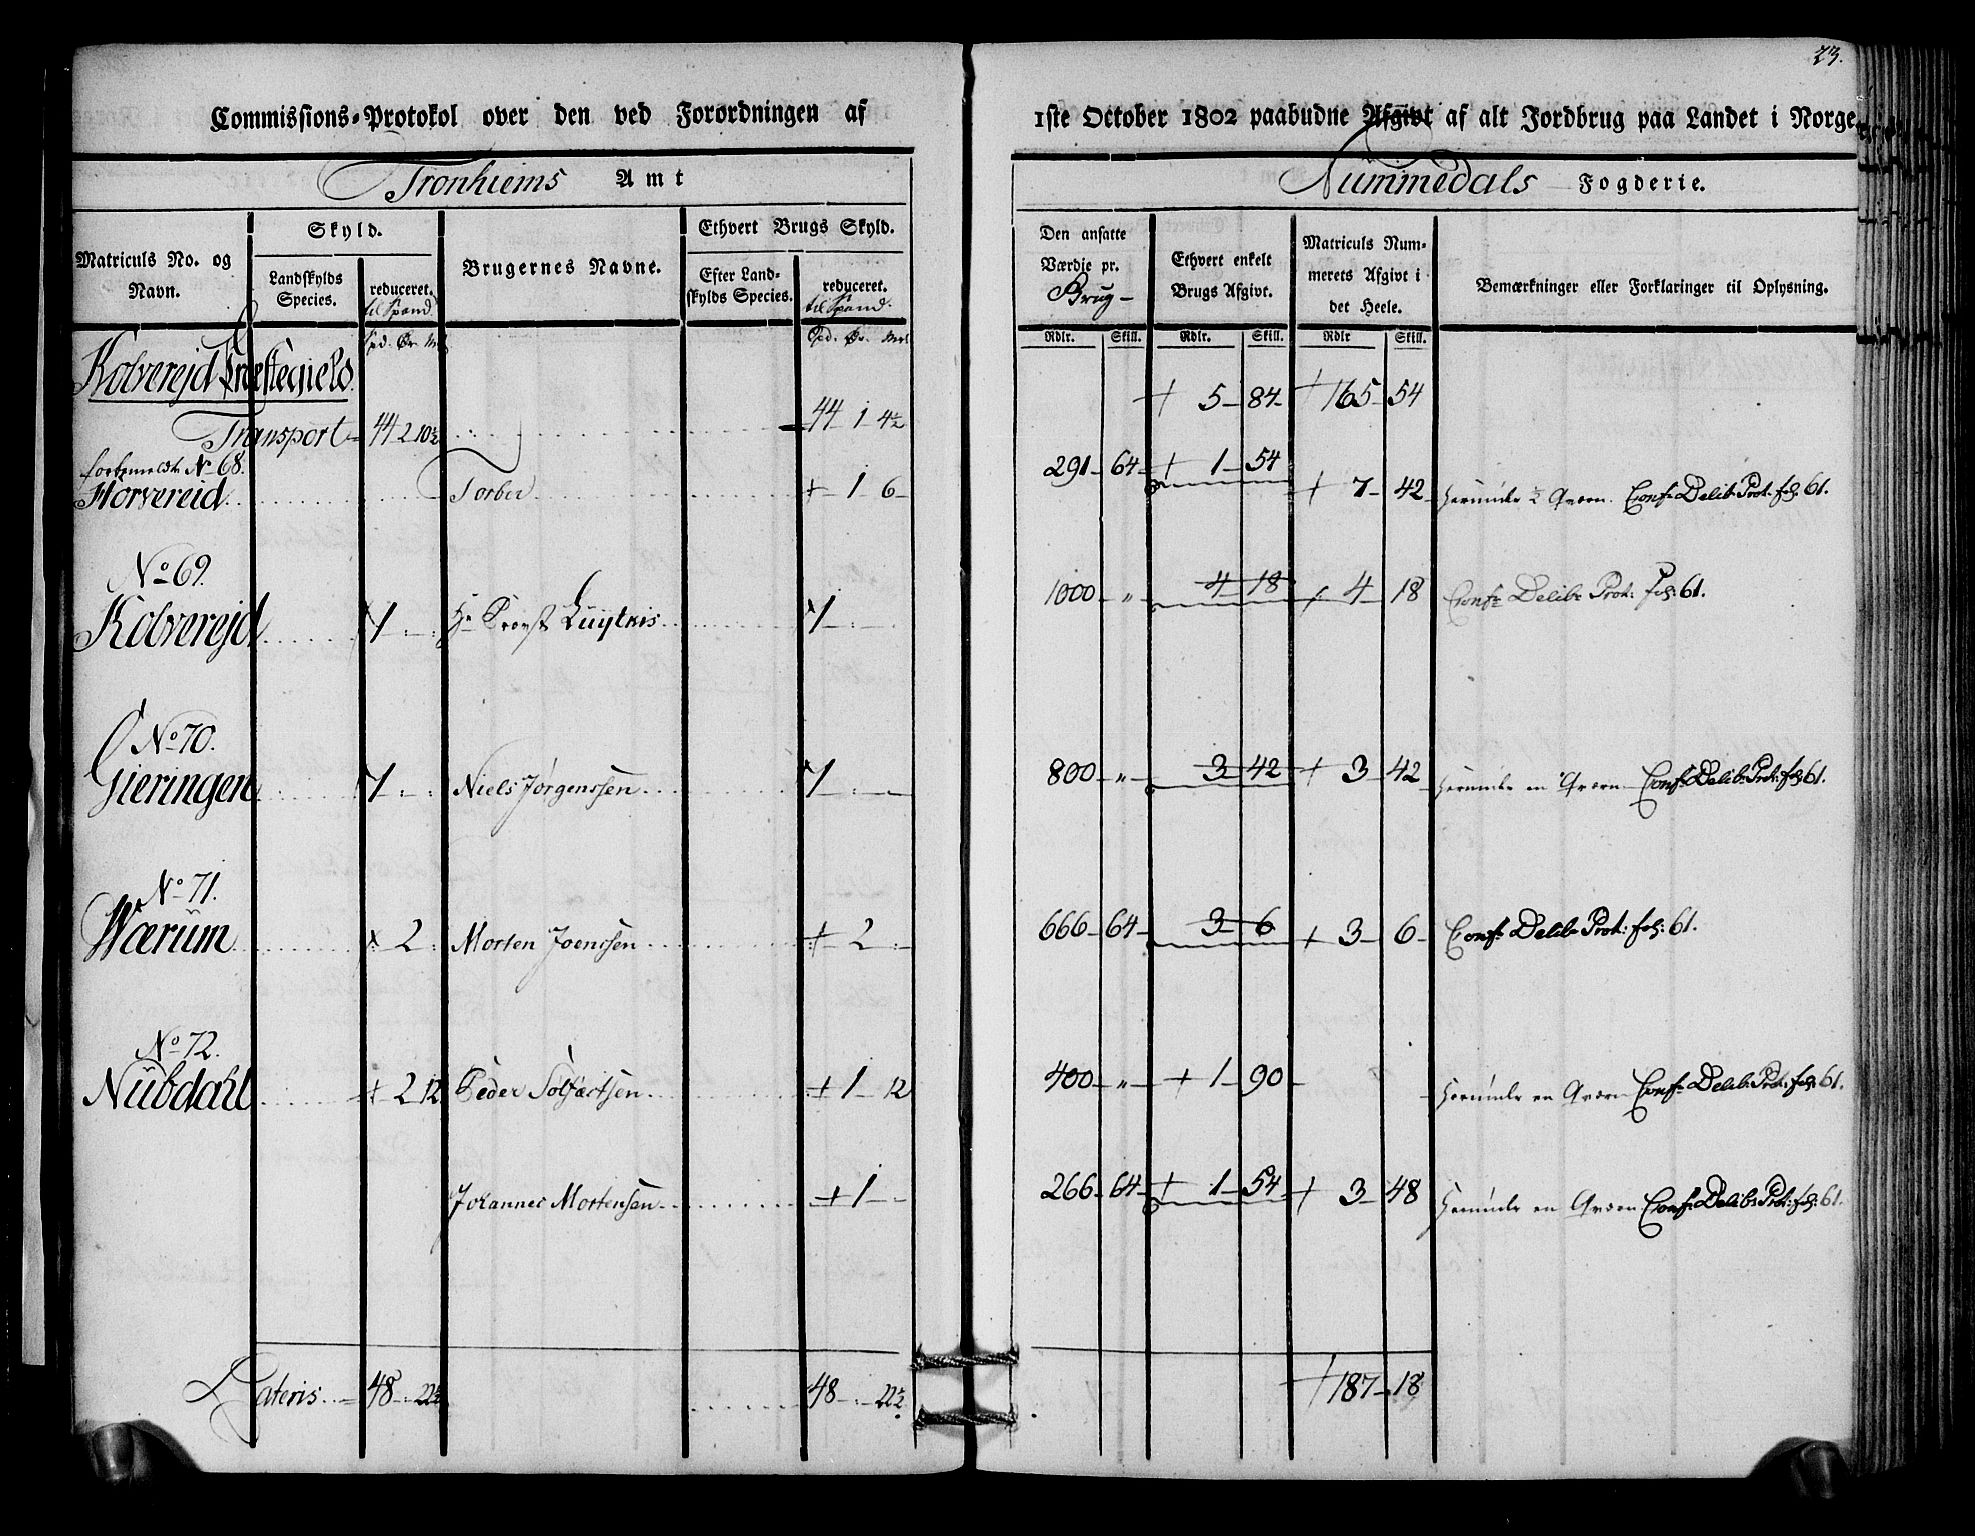 23.
Commissions-Protokol over den ved Forordningen af 1ste October 1802 paabudne Afgivt af alt Jordbrug paa Landet i Norge.
Tronhiems Amt
Nummedals Fogderie.
Matriculs No. og Navn.
Skyld.
Landskylds Species.
reduceret.
til Spand.
Brugernes Navne.
Ethvert Brugs Skyld.
Efter Landskylds Species.
reduceret.
til Spand.
Den ansatte Værdie pr. Brug
Ethvert enkelt Brugs Afgivt.
Matriculs Nummerets Afgivt i det Heele.
Bemærkninger eller Forklaringer til Oplysning.
Rdlr. Skill. Rdlr. Skill. Rdlr Skill.
Kolvereid Præstegield.
+ 5 84 + 165 54
Transport 44 2 10½ 44 1 4½
forbemeldte No 68.
Horvereid Torber + 1 6 291 64 + 1 54 + 7 42 herunder ½ Qværn. Confr Delib: Prot: fol: 61.
No 69.
Kolverejd 1 Hr Provst 1 1000 " 4 18 + 4 18 Confr Delibr Prot: fol: 61.
No 70.
Gieringen 1 Niels Jørgenssen 1 800 " 3 42 + 3 42 herunder en Qværn Confr Delib: Prot: fol: 61.
No 71.
Wærum + 2 Morten Joenssen + 2 666 64 3 6 + 3 6 Confr Delibr Prot: fol: 61.
No 72.
Nubdahl + 2 12 Peder Solfæstsen + 1 12 400 " + 1 90 herunder en Qværn Confr Delib: Prot: fol: 61.
Johannes Mortensen + 1 266 64 + 1 54 + 3 48 herunder en Qværn Confr Delib: Prot: fol: 61.
Lateris 48 22½ 48 22½ + 187 18